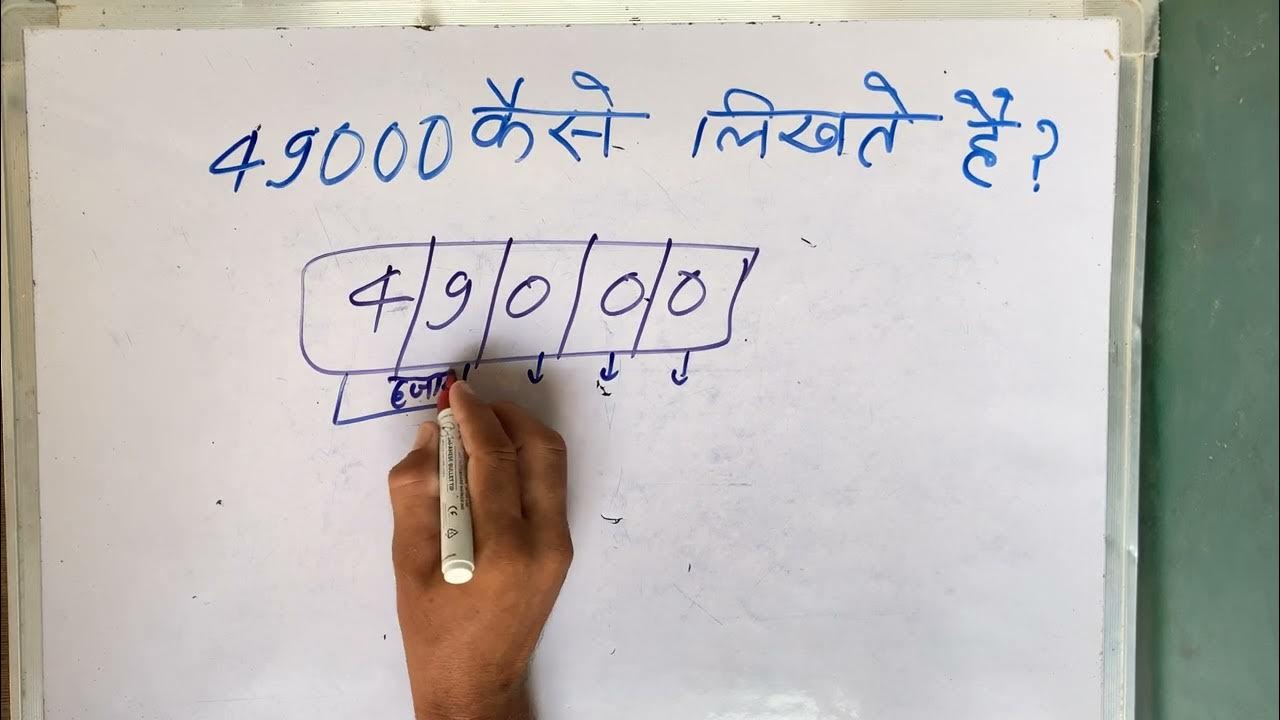 49000 कैसे लिखते है?
4 9 0 0 0
हजा